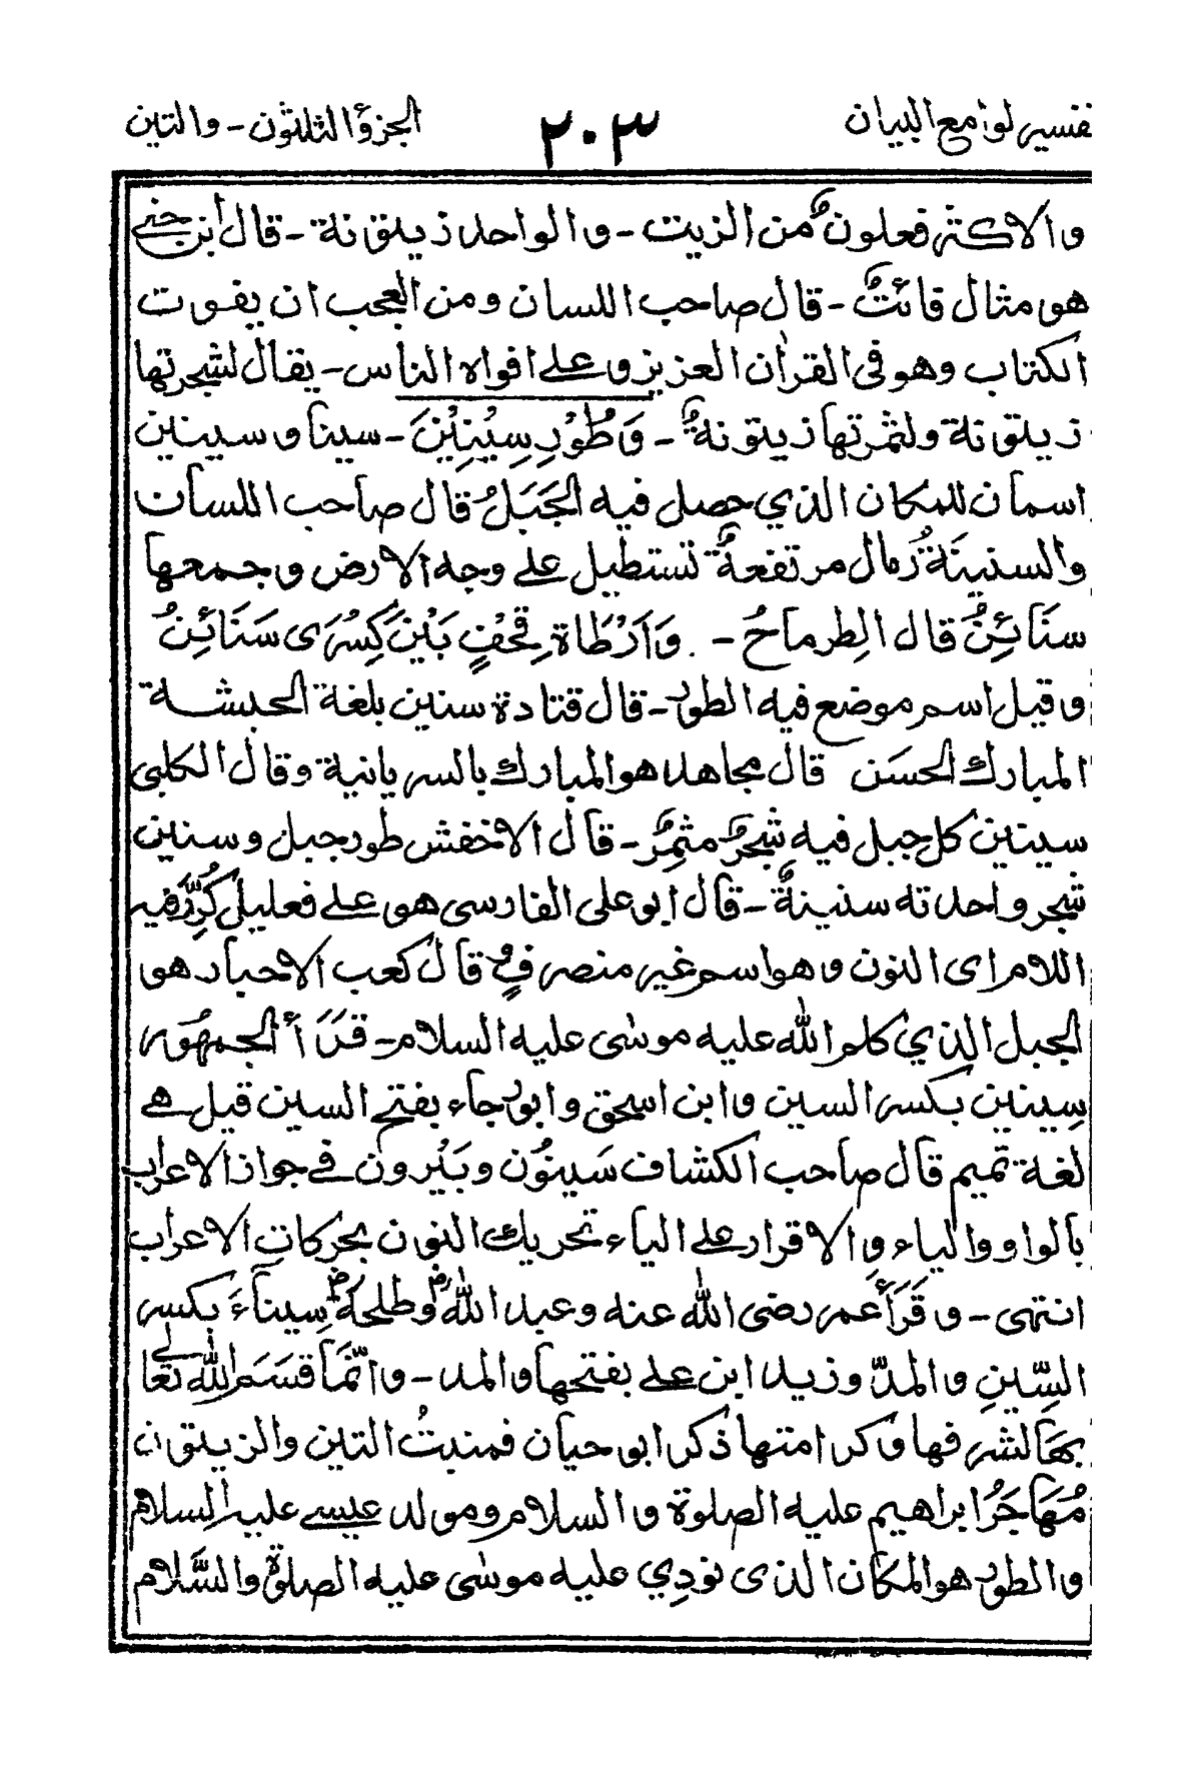 تفسير لوامع البيان ٢٠٣ الجزؤ الثلثون - والتين
والاكثر فعلونٌ من الزيت - والواحد زيتونة - قال ابن جني
هو مثال قائتٌ - قال صاحب اللسان ومن العجب ان يفوت
الكتاب وهو فى القرآن العزيز وعلى افواه الناس - يقال لشجرتها
زيتونة ولثمرتها زيتونةٌ - وَطُوْرِ سِيْنِيْنَ - سينا وسينين
اسمان للمكان الذي حصل فيه الجَبَلُ قال صاحب اللسان
والسنينَةُ رمال مرتفعةٌ تستطيل على وجه الارض وجمعها
سنَائِنُ قال الطِرماحُ - وَاَرْطَاةِ قِحْفٍ بَيْنَ كِسْرَى سَنَائِنُ
وقيل اسم موضع فيه الطور - قال قتادة سنين بلغة الحبشة
المبارك الحسَن قال مجاهد هو المبارك بالسريانية وقال الكلبى
سينين كل جبل فيه شجرٌ مثمِرٌ - قال الاخفش طور جبل وسنين
شجر واحدته سنينةٌ - قال ابو على الفارسى هو على فعليل كُرِّرَ فيه
اللام اى النون وهو اسم غير منصرفٍ قال كعب الاحبار هو
الجبل الذي كلم الله عليه موسى عليه السلام - قَرَأَ الجمهُور
سِينين بكسر السين وابن اسحق وابو رجاء بفتح السين قيل هى
لغة تميم قال صاحب الكشاف سَينُون ويَبْرون فى جواز الاعراب
بالواو والياء والاقرار على الياء تحريك النون بحركاتِ الاعراب
انتهى - وقَرَأَ عمر رضى الله عنه وعبد اللهؓ وطلحةؓ سِيناءَ بكسر
السِّينِ والمدّ وزيد ابن على بفتحها والمد - وانّمَا قسَمَ الله تعالى
بهَا لشرفها وكرامتها ذكر ابو حيان فمنبتُ التين والزيتون
مُهَاجَرُ ابراهيم عليه الصلوة والسلام ومولد عيسى عليه السلام
والطور هو المكان الذى نودِي عليه موسى عليه الصلوة والسَّلام